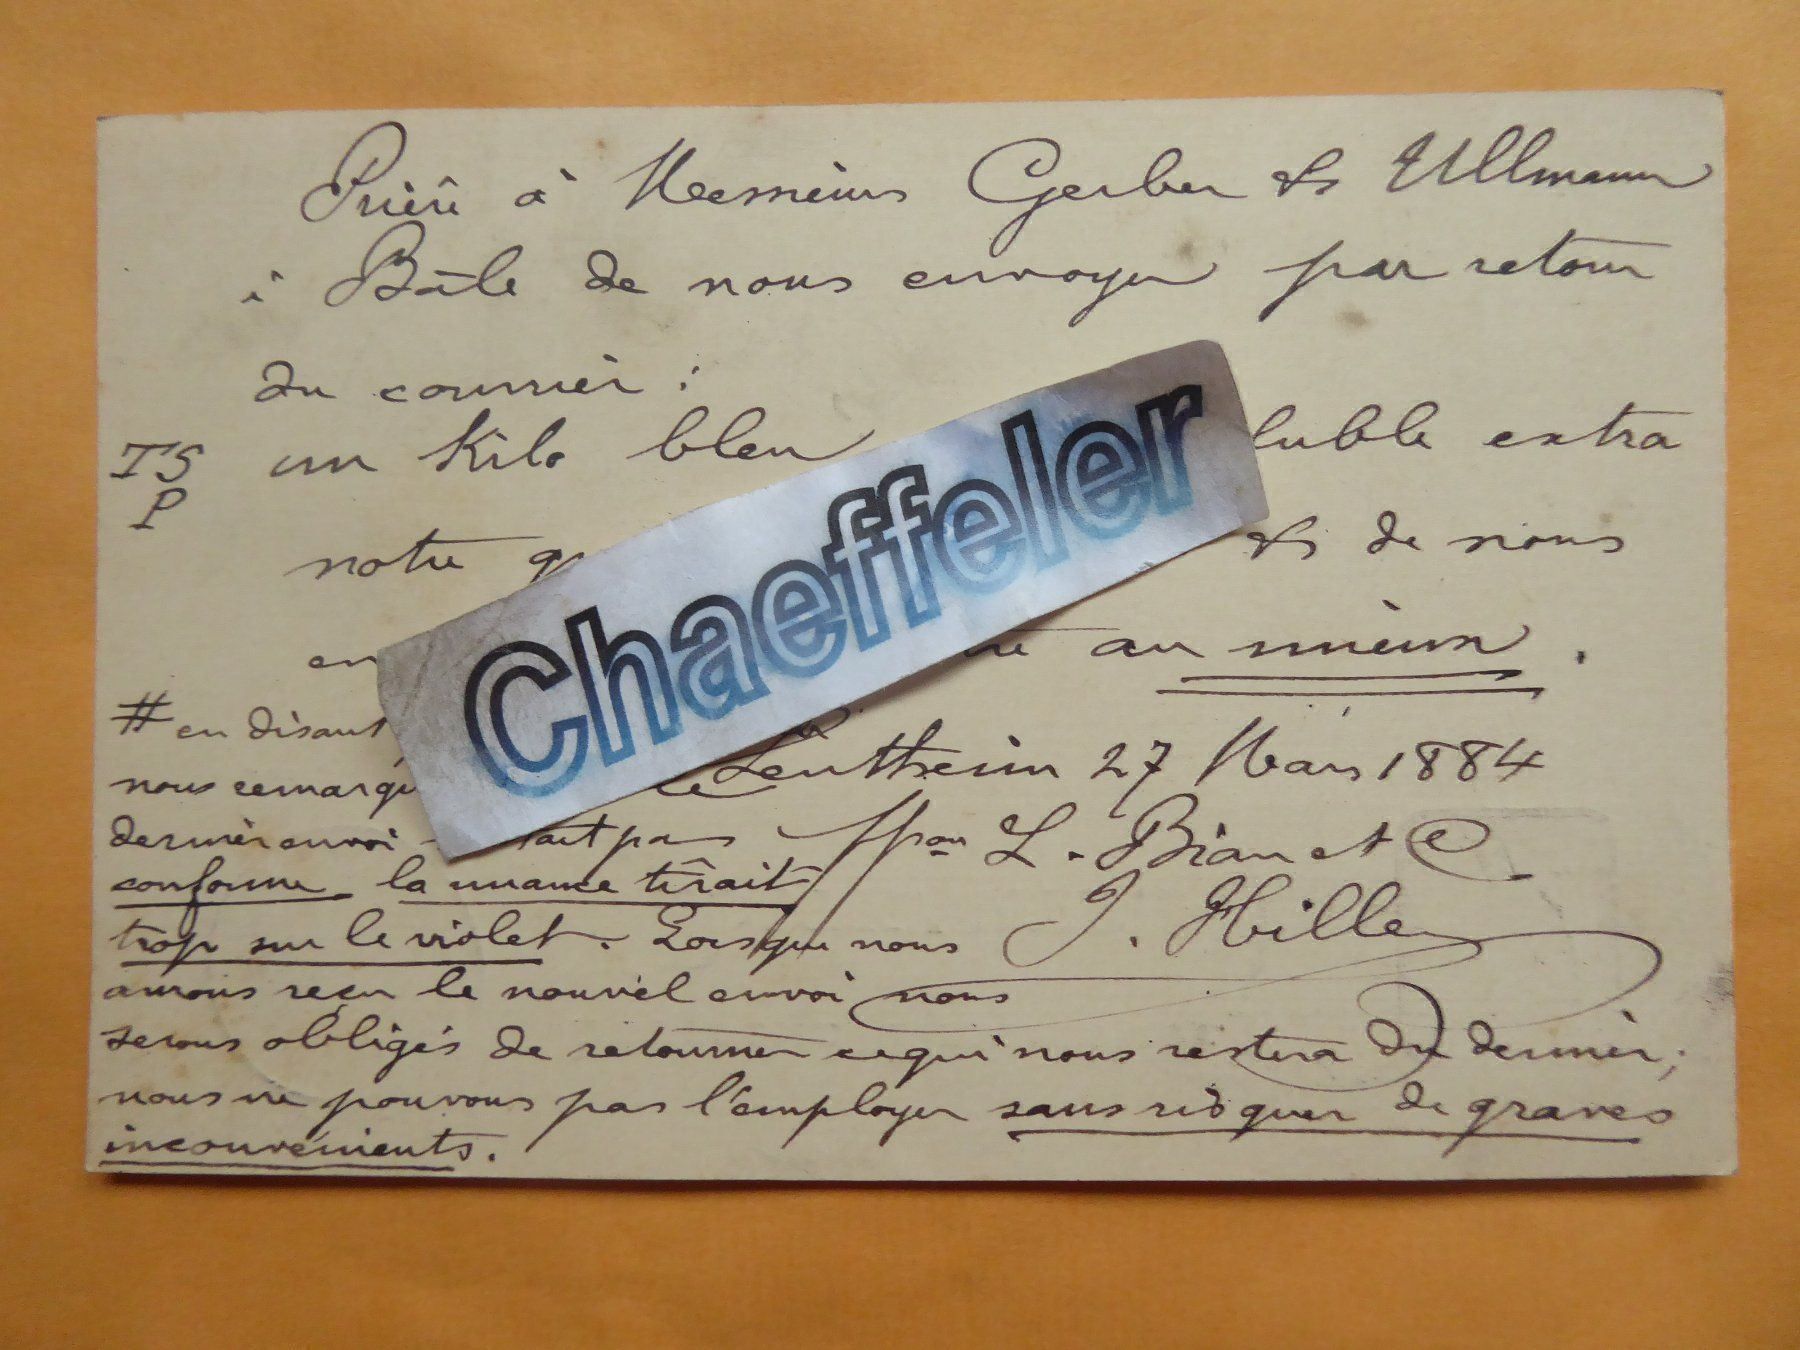 Prière à Messieurs Gerber & Ullmann
à Bâle de nous envoyer par retour
du courrier :
TS un Kilo bleu luble extra
P
notre & de nous
en au mieux .
Chaeffeler
# en disant
Leutheim 27 Mars 1884
nous remarqu
dernier envoi ait pas Ppon L. Bian et C
conforme la nuance tirait J. Hiller
trop sur le violet. Lorsque nous
aurons reçu le nouvel envoi nous
serons obligés de retourner ce qui nous restera du dernier;
nous ne pouvons pas l'employer sans risquer de graves
inconvénients.